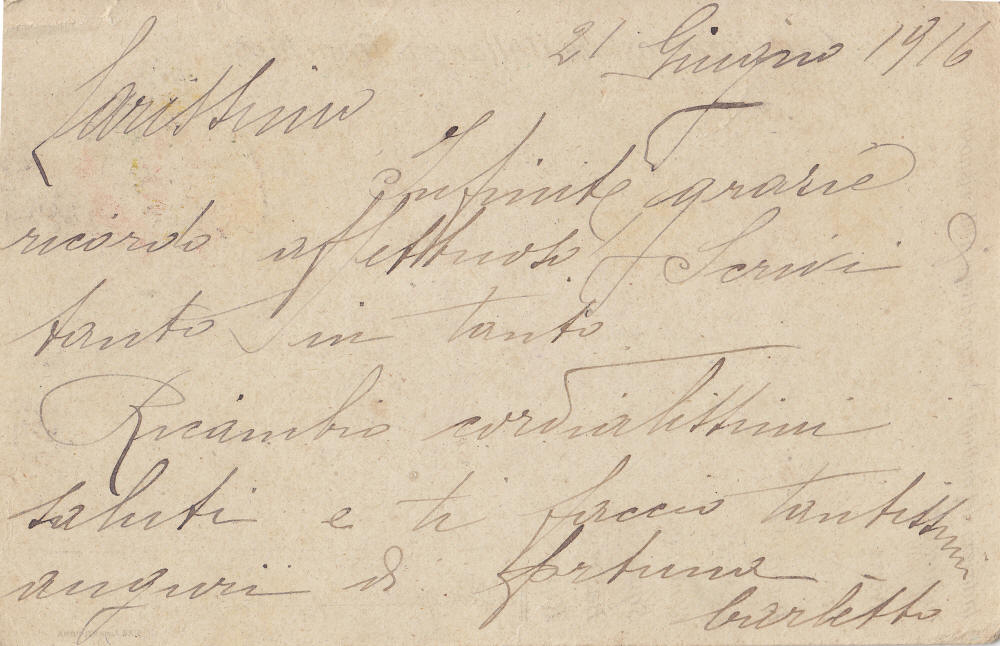 21 Giugno 1916
Carissimo
Infinite grazie
ricordo affettuoso Scrivi di
tanto in tanto
Ricambio cordialissimi
saluti e ti faccio tantissimi
auguri di fortuna
Carletto